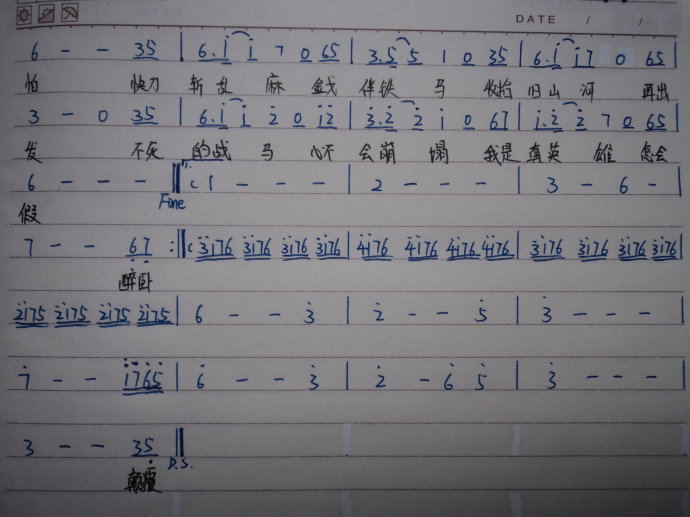 DATE / /
6 - - 35 | 6. i i 7 0 65 | 3. 5 5 1 0 35 | 6. i i7 0 65 |
怕 快刀 斩乱 麻 金戈 伴铁 马 收拾 旧山 河 再出
3 - 0 35 | 6. i i 2̇ 0 i2̇ | 3̇. 2̇ 2̇ i 0 67 | i. 2̇ 2̇ 7 0 65 |
发 不死 的战 马 心不 会崩 塌 我是 真英 雄 怎会
6 - - - ‖ 1. ( 1 - - - | 2 - - - | 3 - 6 - |
假 Fine
7 - - 6̣7̣ :‖( 3̇i76 3̇i76 3̇i76 3̇i76 | 4̇i76 4̇i76 4̇i76 4̇i76 | 3̇i76 3̇i76 3̇i76 3̇i76 |
醉卧
2̇i75 2̇i75 2̇i75 2̇i75 | 6 - - 3̇ | 2̇ - - 5̇ | 3̇ - - - |
7̇ - - i̇7̇6̇5̇ | 6̇ - - 3̇ | 2̇ - 6̇ 5̇ | 3̇ - - - |
3 - - 35 ‖
颠覆 D.S.